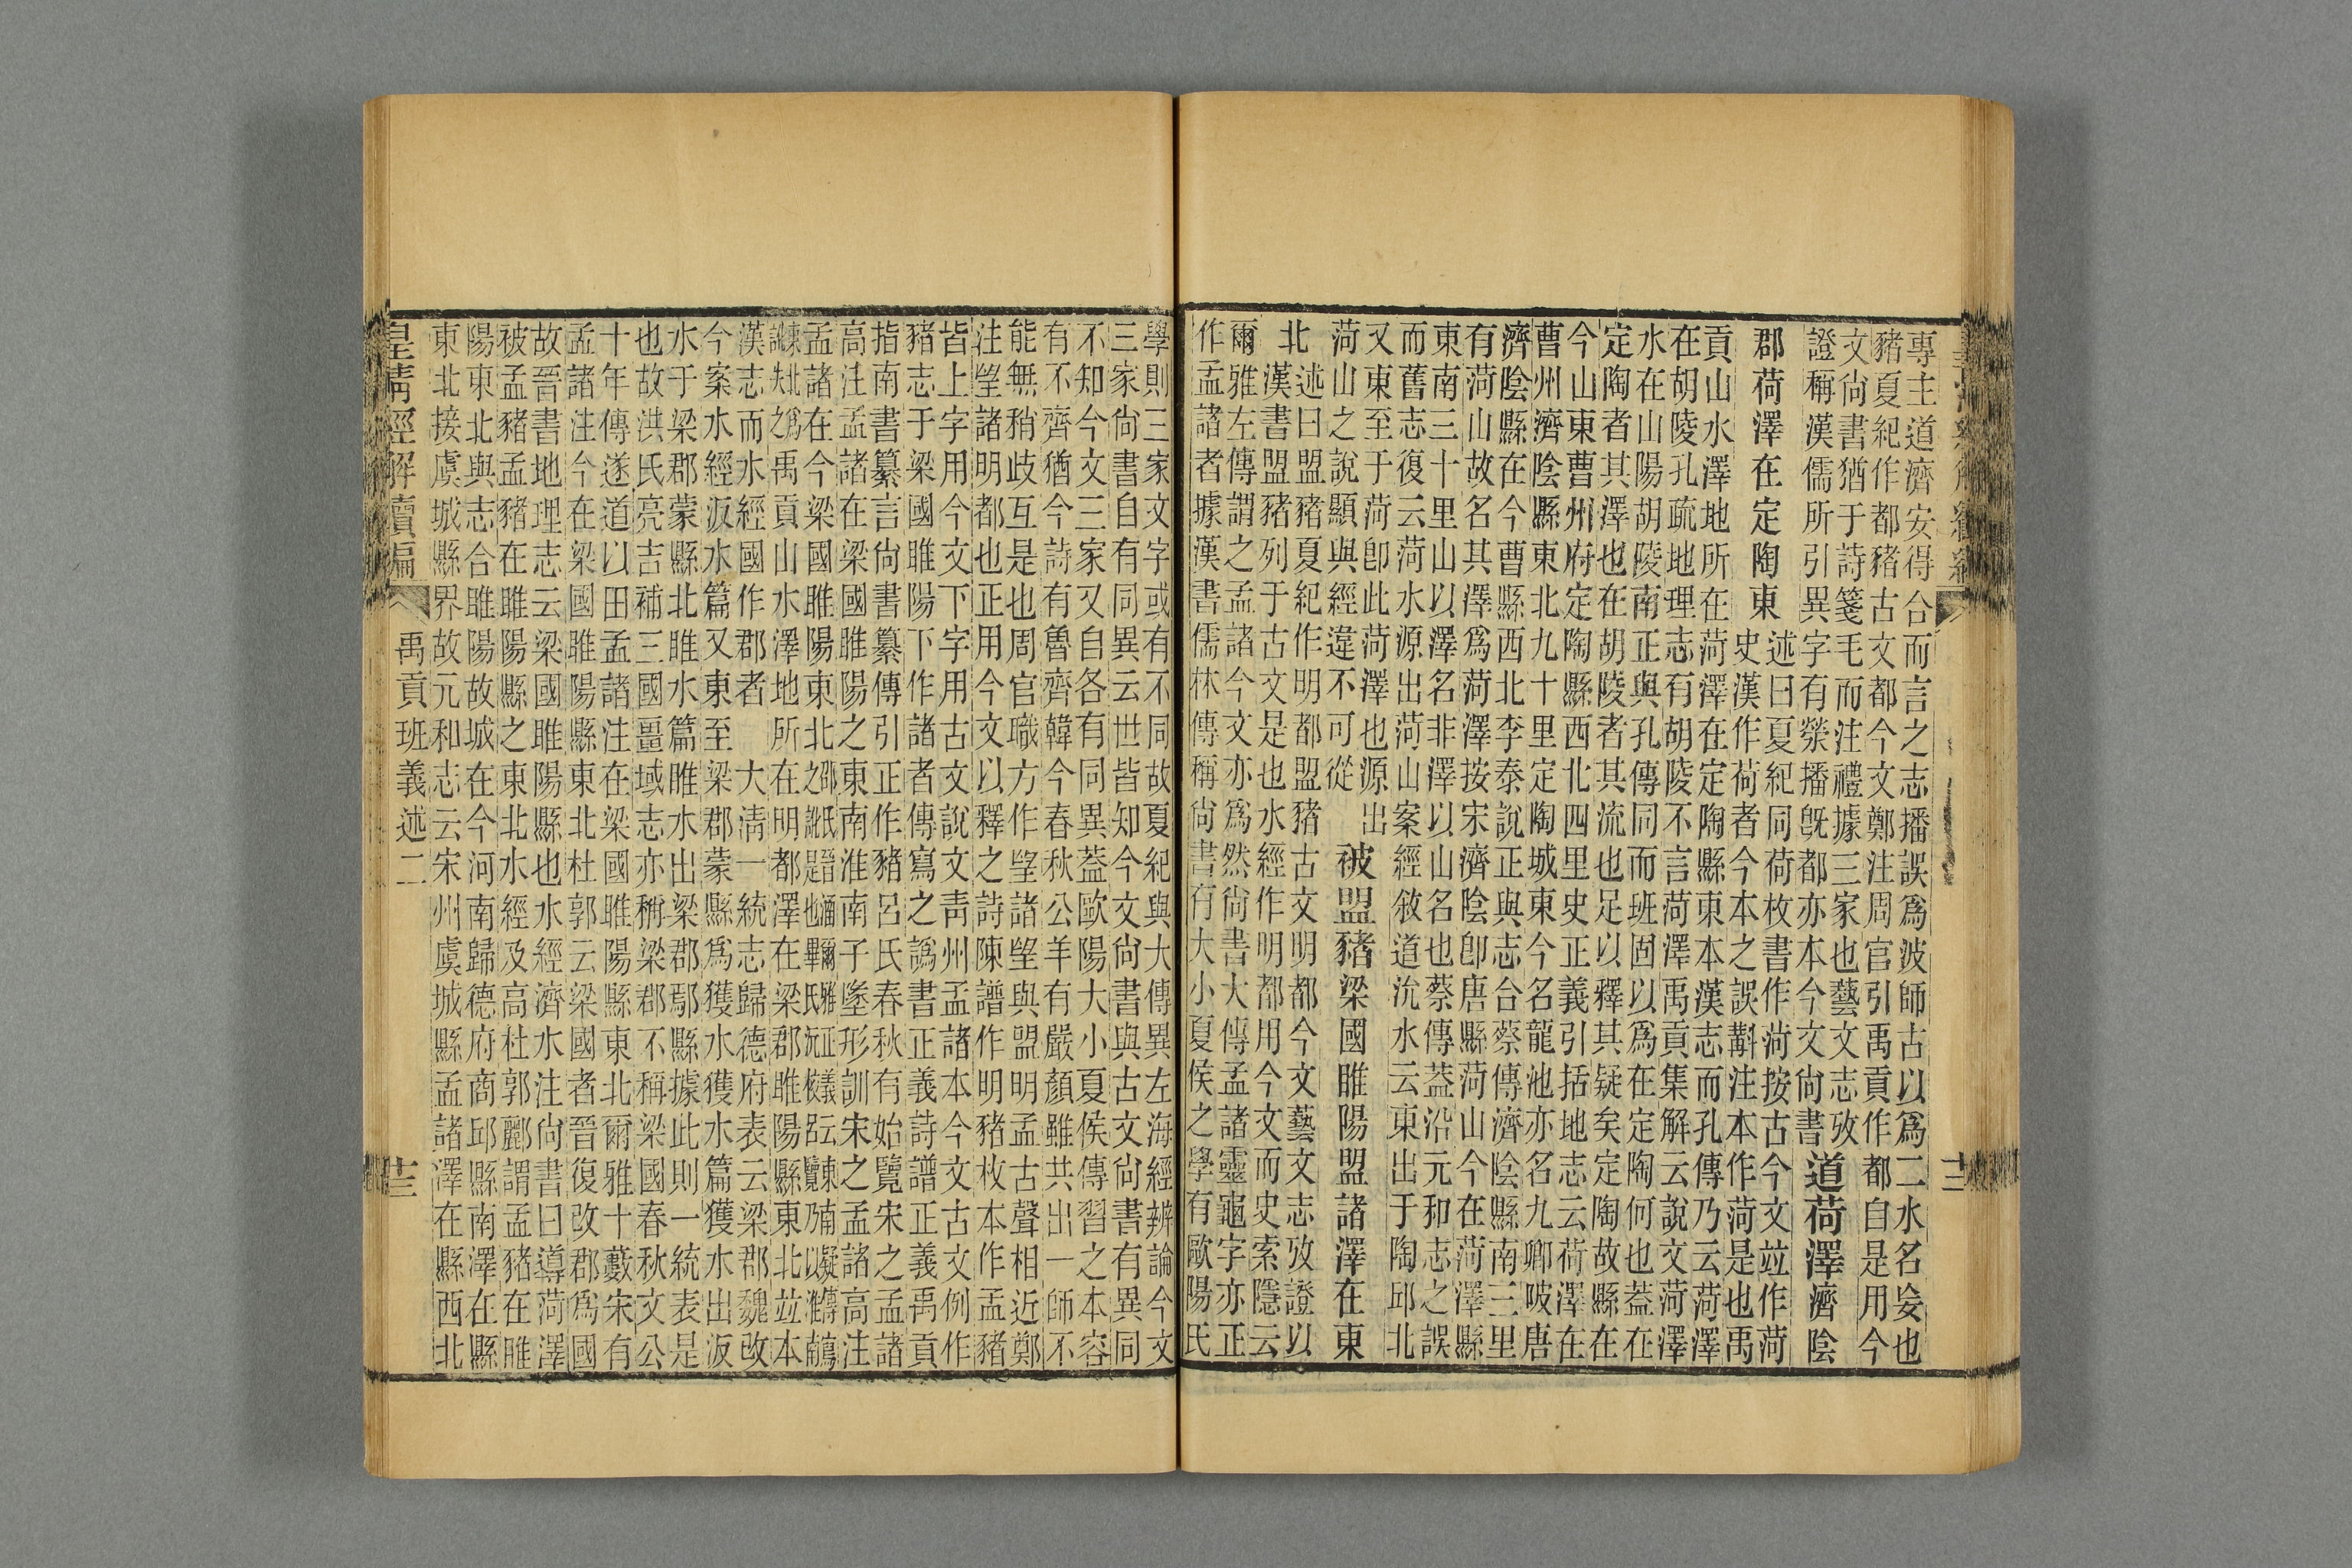 專主道濟安得合而言之志播誤爲波師古以爲二水名妄也
豬夏紀作都豬古文都今文鄭注周官引禹貢作都自是用今
文尚書猶于詩箋毛而注禮據三家也藝文志攷
證稱漢儒所引異字有滎播旣都亦本今文尚書
道荷澤濟陰
郡荷澤在定陶東
述曰夏紀同荷枚書作菏按古今文竝作菏
史漢作荷者今本之誤斠注本作菏是也禹
貢山水澤地所在菏澤在定陶縣東本漢志而孔傳乃云菏澤
在胡陵孔疏地理志有胡陵不言菏澤禹貢集解云說文菏澤
水在山陽胡陵南正與孔傳同而班固以爲在定陶何也蓋在
定陶者其澤也在胡陵者其流也足以釋其疑矣定陶故縣在
今山東曹州府定陶縣西北四里史正義引括地志云荷澤在
曹州濟陰縣東北九十里定陶城東今名龍池亦名九卿陂唐
濟陰縣在今曹縣西北李泰說正與志合蔡傳濟陰縣南三里
有菏山故名其澤爲菏澤按宋濟陰卽唐縣菏山今在菏澤縣
東南三十里山以澤名非澤以山名也蔡傳蓋沿元和志之誤
而舊志復云菏水源出菏山案經敘道沇水云東出于陶邱北
又東至于菏卽此菏澤也源出
菏山之說顯與經違不可從
被盟豬梁國睢陽盟諸澤在東
北
述曰盟豬夏紀作明都盟豬古文明都今文藝文志攷證以
漢書盟豬列于古文是也水經作明都用今文而史索隱云
爾雅左傳謂之孟諸今文亦爲然尚書大傳孟諸靈龜字亦正
作孟諸者據漢書儒林傳稱尚書有大小夏侯之學有歐陽氏
學則三家文字或有不同故夏紀與大傳異左海經辨論今文
三家尚書自有同異云世皆知今文尚書與古文尚書有異同
不知今文三家又自各有同異蓋歐陽大小夏侯傳習之本容
有不齊猶今詩有魯齊韓今春秋公羊有嚴顏雖共出一師不
能無稍歧互是也周官職方作望諸望與盟明孟古聲相近鄭
注望諸明都也正用今文以釋之詩陳譜作明豬枚本作孟豬
皆上字用今文下字用古文說文靑州孟諸本今文古文例作
豬志于梁國睢陽下作諸者傳寫之譌書正義詩譜正義禹貢
指南書纂言尚書纂傳引正作豬呂氏春秋有始覽宋之孟諸
高注孟諸在梁國睢陽之東南淮南子墬形訓宋之孟諸高注
孟諸在今梁國睢陽東北
之禹貢山水澤地所在明都澤在梁郡睢陽縣東北竝本
漢志而水經國作郡者 大淸一統志歸德府表云梁郡魏改
今案水經汳水篇又東至梁郡蒙縣爲獲水獲水篇獲水出汳
水于梁郡蒙縣北睢水篇睢水出梁郡鄢縣據此則一統表是
也故洪氏亮吉補三國疆域志亦稱梁郡不稱梁國春秋文公
十年傳遂道以田孟諸注在梁國睢陽縣東北爾雅十藪宋有
孟諸注今在梁國睢陽縣東北杜郭云梁國者晉復改郡爲國
故晉書地理志云梁國睢陽縣也水經濟水注尚書曰導菏澤
被孟豬孟豬在睢陽縣之東北水經及高杜郭酈謂孟豬在睢
陽東北與志合睢陽故城在今河南歸德府商邱縣南澤在縣
東北接虞城縣界故元和志云宋州虞城縣孟諸澤在縣西北
皇淸經解續編
禹貢班義述二
十三